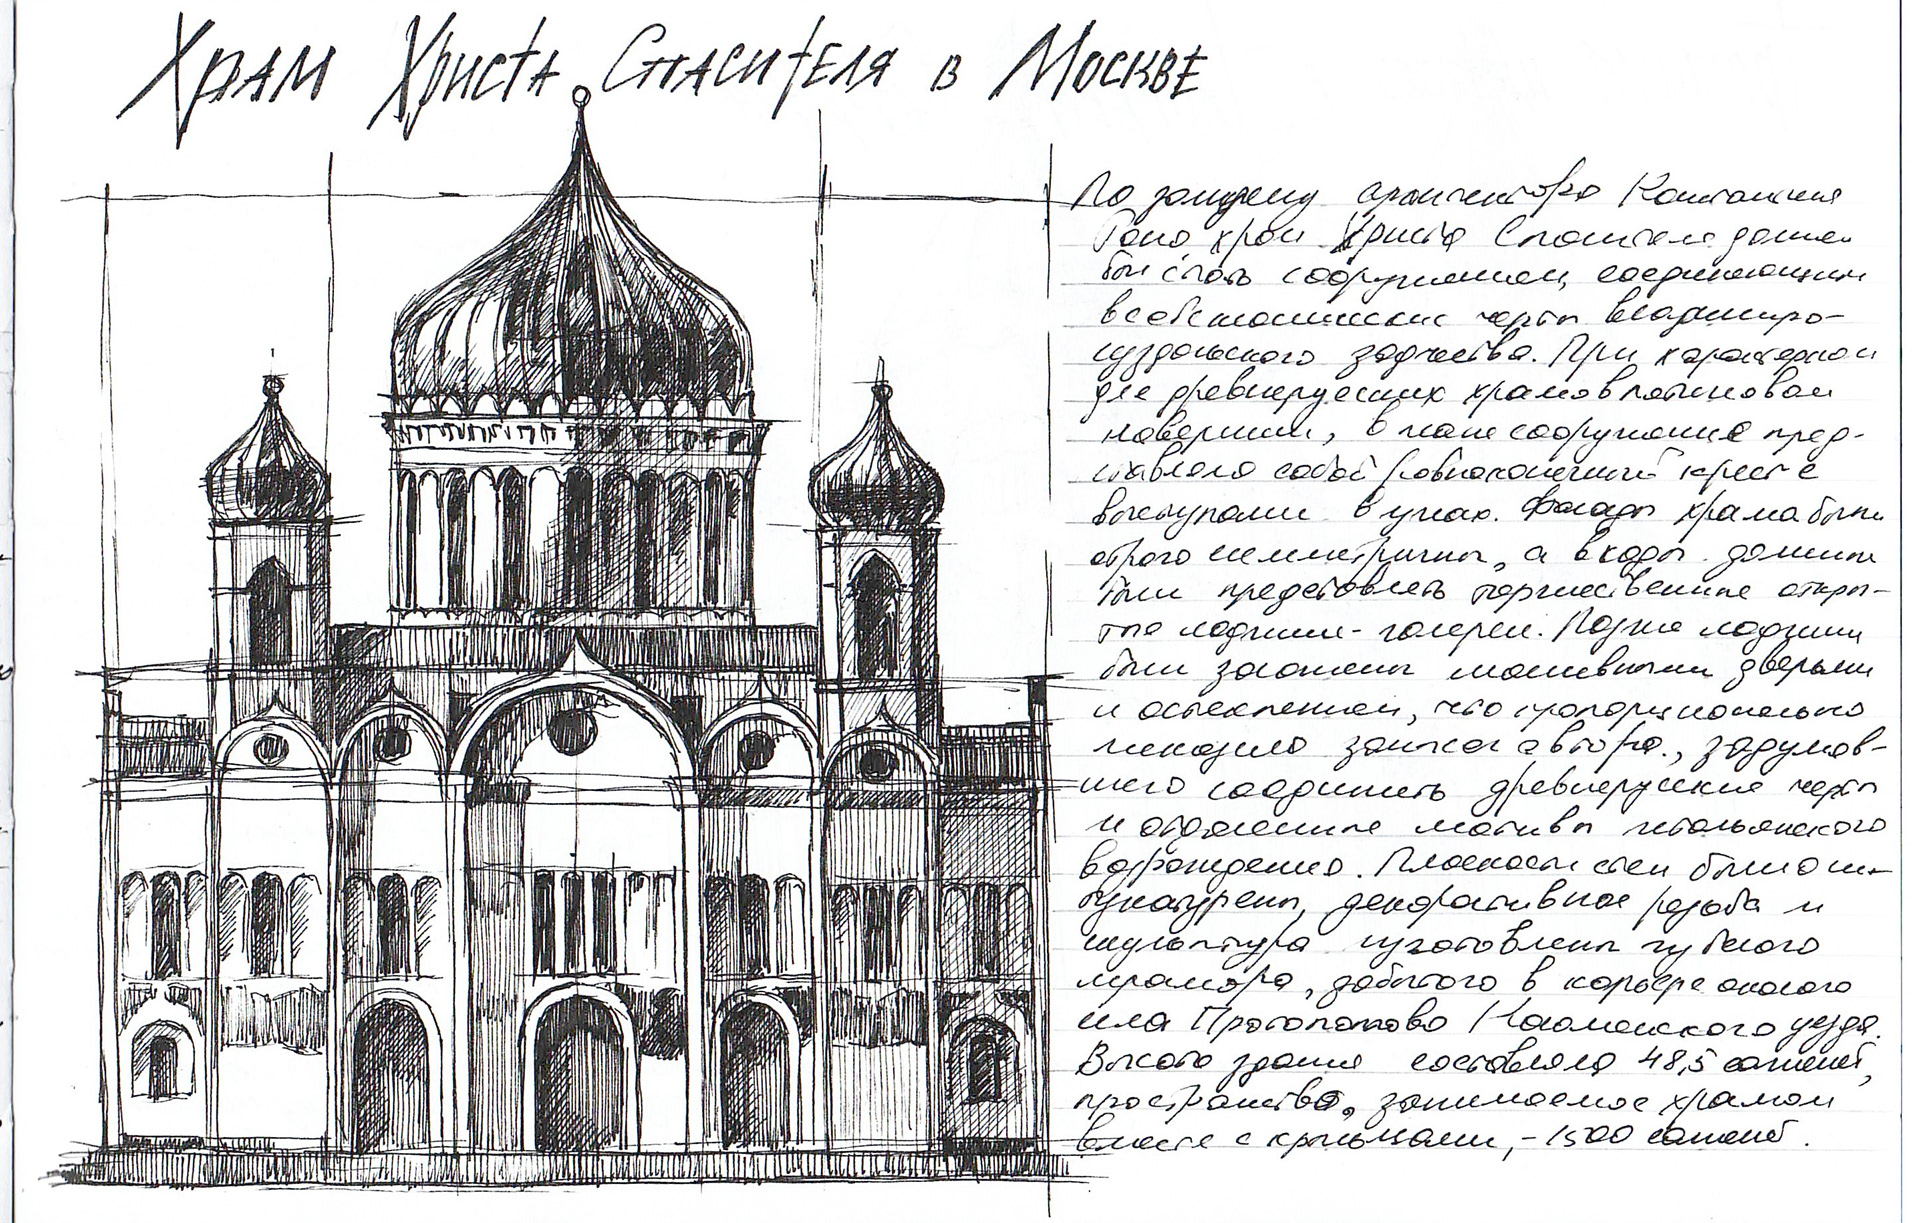 Храм Христа Спасителя в Москве
По замыслу архитектора Константина
Тона храм Христа Спасителя должен
был стать сооружением, соединяющим
в себе черты владимиро-
суздальского зодчества. При характерном
для древнерусских храмов пятиглавом
навершии, в плане сооружение пред-
ставляло собой равноконечный крест с
выступами в углах. Фасады храма были
строго симметричны, а входы должны
были представлять торжественные откры-
тые лоджии-галереи. Позже лоджии
были заложены массивными дверьми
и остеклением, что пропорционально
исказило замысел автора, задумав-
шего соединить древнерусские черты
и отдаленные мотивы итальянского
возрождения. Плоскости стен были ош-
тукатурены, декоративная резьба и
скульптура изготовлены из белого
мрамора, добытого в карьере около
села Протопопово Коломенского уезда.
Высота здания составляла 48,5 саженей,
пространство, занимаемое храмом
вместе с крыльцами, - 1500 саженей.